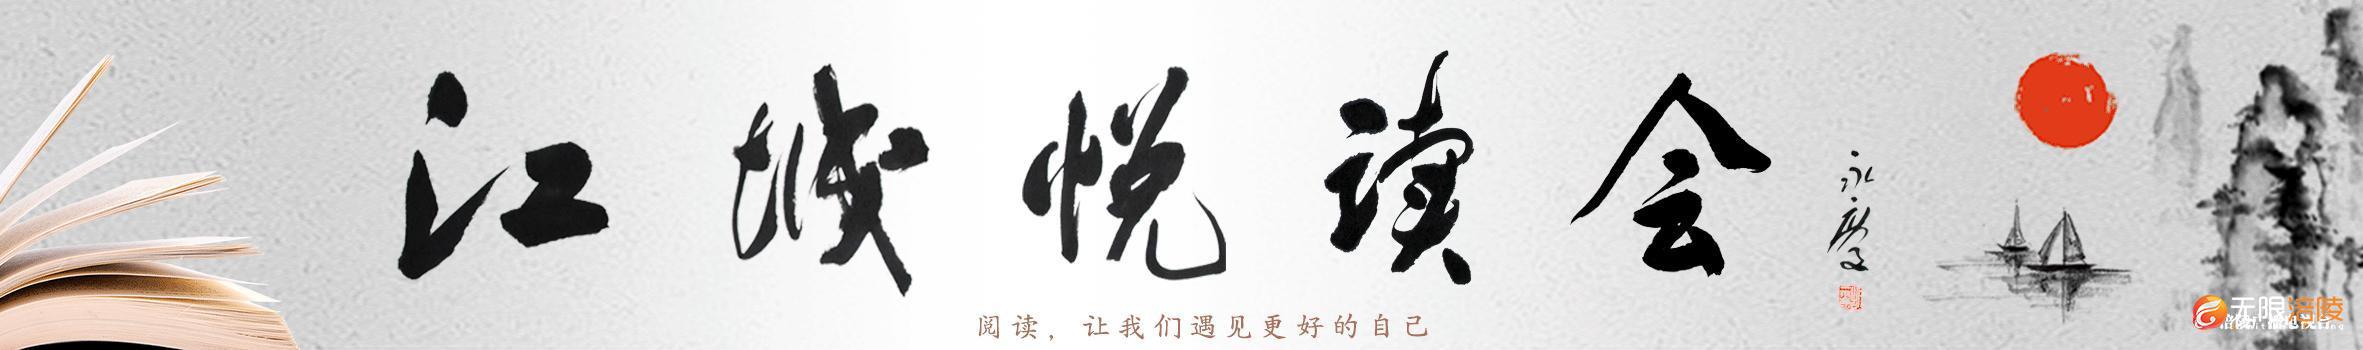 江城悦读会
永庆
阅读，让我们遇见更好的自己
无限涪陵